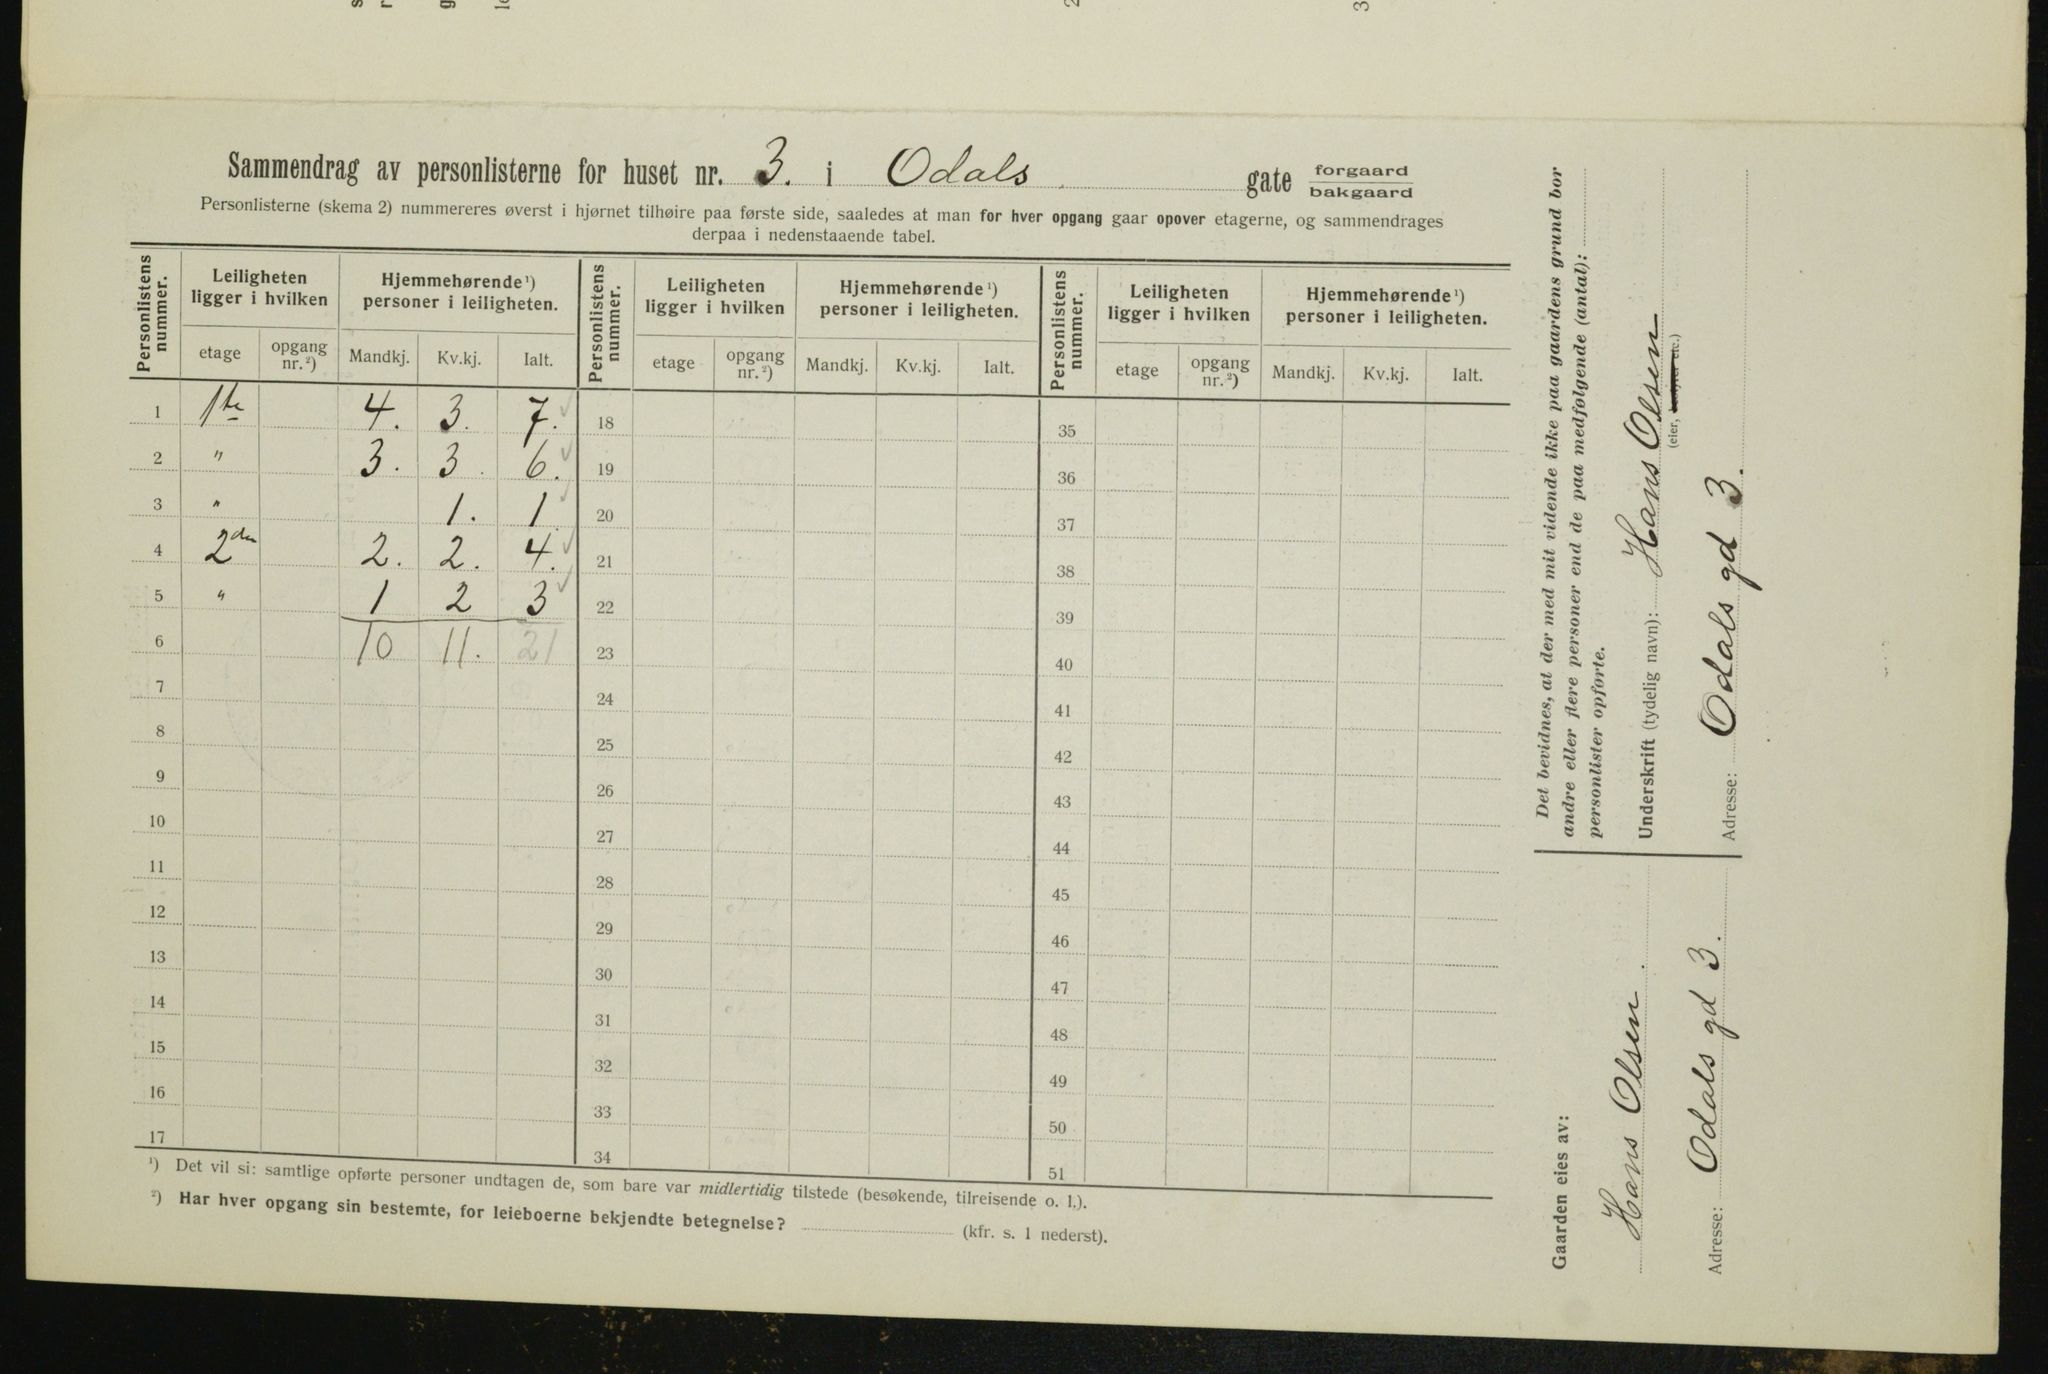 Sammendrag av personlisterne for huset nr. 3. i Odals gate forgaard bakgaard
Personlisterne (skema 2) nummereres øverst i hjørnet tilhøire paa første side, saaledes at man for hver opgang gaar opover etagerne, og sammendrages
derpaa i nedenstaaende tabel.
Personlistens nummer. Leiligheten ligger i hvilken Hjemmehørende¹) personer i leiligheten. Personlistens nummer. Leiligheten ligger i hvilken Hjemmehørende¹) personer i leiligheten. Personlistens nummer. Leiligheten ligger i hvilken Hjemmehørende¹) personer i leiligheten.
etage opgang nr.²) Mandkj. Kv.kj. Ialt. etage opgang nr.²) Mandkj. Kv.kj. Ialt. etage opgang nr.²) Mandkj. Kv.kj. Ialt.
1 1ste 4. 3. 7. 18 35
2 " 3. 3. 6. 19 36
3 " 1. 1 20 37
4 2den 2. 2. 4. 21 38
5 " 1 2 3 22 39
6 10 11. 21 23 40
7 24 41
8 25 42
9 26 43
10 27 44
11 28 45
12 29 46
13 30 47
14 31 48
15 32 49
16 33 50
17 34 51
¹) Det vil si: samtlige opførte personer undtagen de, som bare var midlertidig tilstede (besøkende, tilreisende o. l.).
²) Har hver opgang sin bestemte, for leieboerne bekjendte betegnelse? (kfr. s. 1 nederst).
Det bevidnes, at der med mit vidende ikke paa gaardens grund bor
andre eller flere personer end de paa medfølgende (antal):
personlister opførte.
Underskrift (tydelig navn): Hans Olsen
(eier, bestyrer etc.)
Adresse: Odals gd 3.
Gaarden eies av:
Hans Olsen.
Adresse: Odals gd 3.